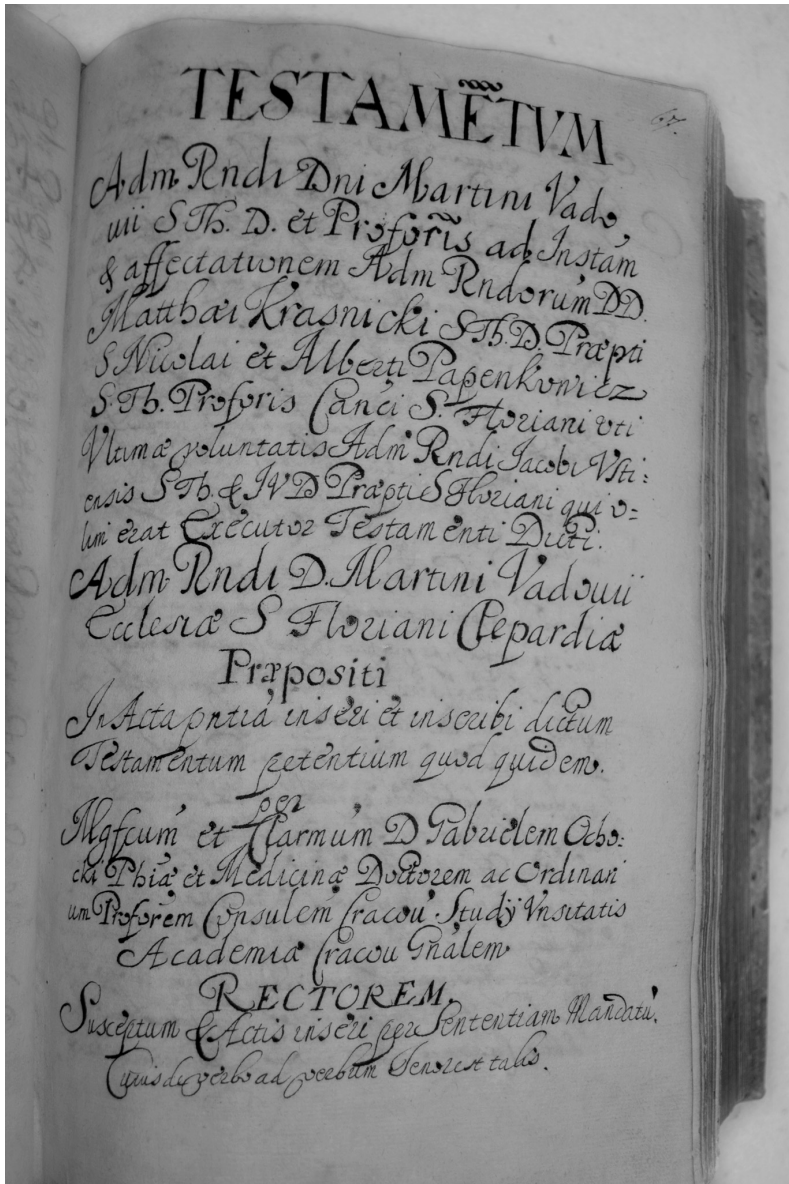 TESTAMEÑTVM
67.
Adm Rndi Dni Martini Vado,
uii S Th. D. et Profoñis ad Instam
& affectationem Adm Rndorum DD.
Matthæi Krasnicki S Th. D. Præpti
S Nicolai et Alberti Papenkowicz
S. Th. Proforis Canci S. Floriani vti
Vltimæ voluntatis Adm Rndi Jacobi Vsti:
ensis S Th. & IVD Præpti S Floriani qui o=
lim erat Executor Testamenti Dicti.
Adm Rndi D. Martini Vadouii
Ecclesiæ S Floriani Clepardiæ
Præpositi
In Acta pntia inseri et inscribi dictum
Testamentum petentium quod quidem.
per
Mgfcum et Clarmum D Gabrielem Ocho:
cki Phiæ et Medicinæ Doctorem ac Ordinari
um Proforem Consulem Cracou Study Vnsitatis
Academiæ Cracou Gnalem
RECTOREM,
Susceptum & Actis inseri per Sententiam Mandatu,
Cuius de verbo ad verbum Tenor est talis.